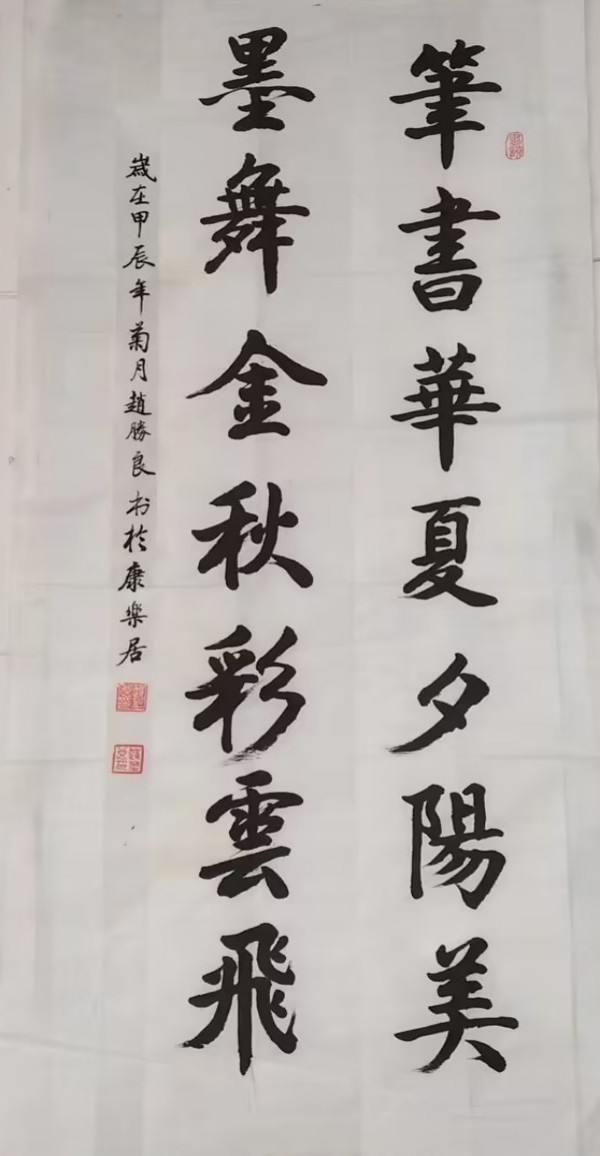 筆書華夏夕陽美
墨舞金秋彩雲飛
歲在甲辰年菊月趙勝良书於康樂居